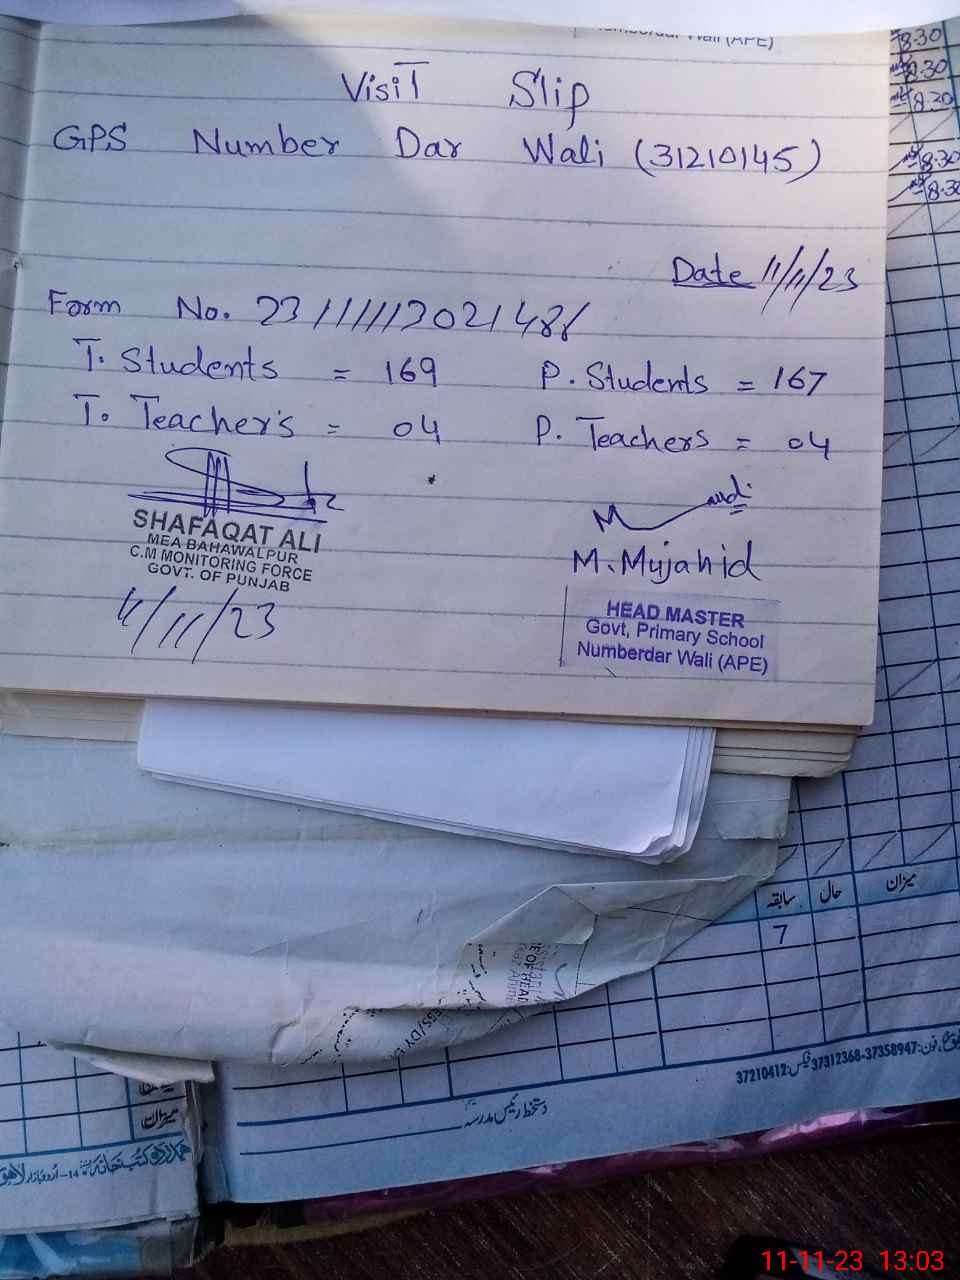 Numberdar Wali (APE)
8.30
8.30
8.30
8.30
8.30
Visit Slip
GPS Number Dar Wali (31210145)
Date 11/11/23
Form No.
T. Students = 169 P. Students = 167
T. Teacher's = 04 P. Teachers = 04
SHAFAQAT ALI
MEA BAHAWALPUR
C.M MONITORING FORCE
GOVT. OF PUNJAB
11/11/23
M. Mujahid
HEAD MASTER
Govt, Primary School
Numberdar Wali (APE)
سابقہ حال میزان
7
فون:37358947-37312368 فیکس:37210412
دستخط رئیس مدرسہ
میزان
11-11-23 13:03